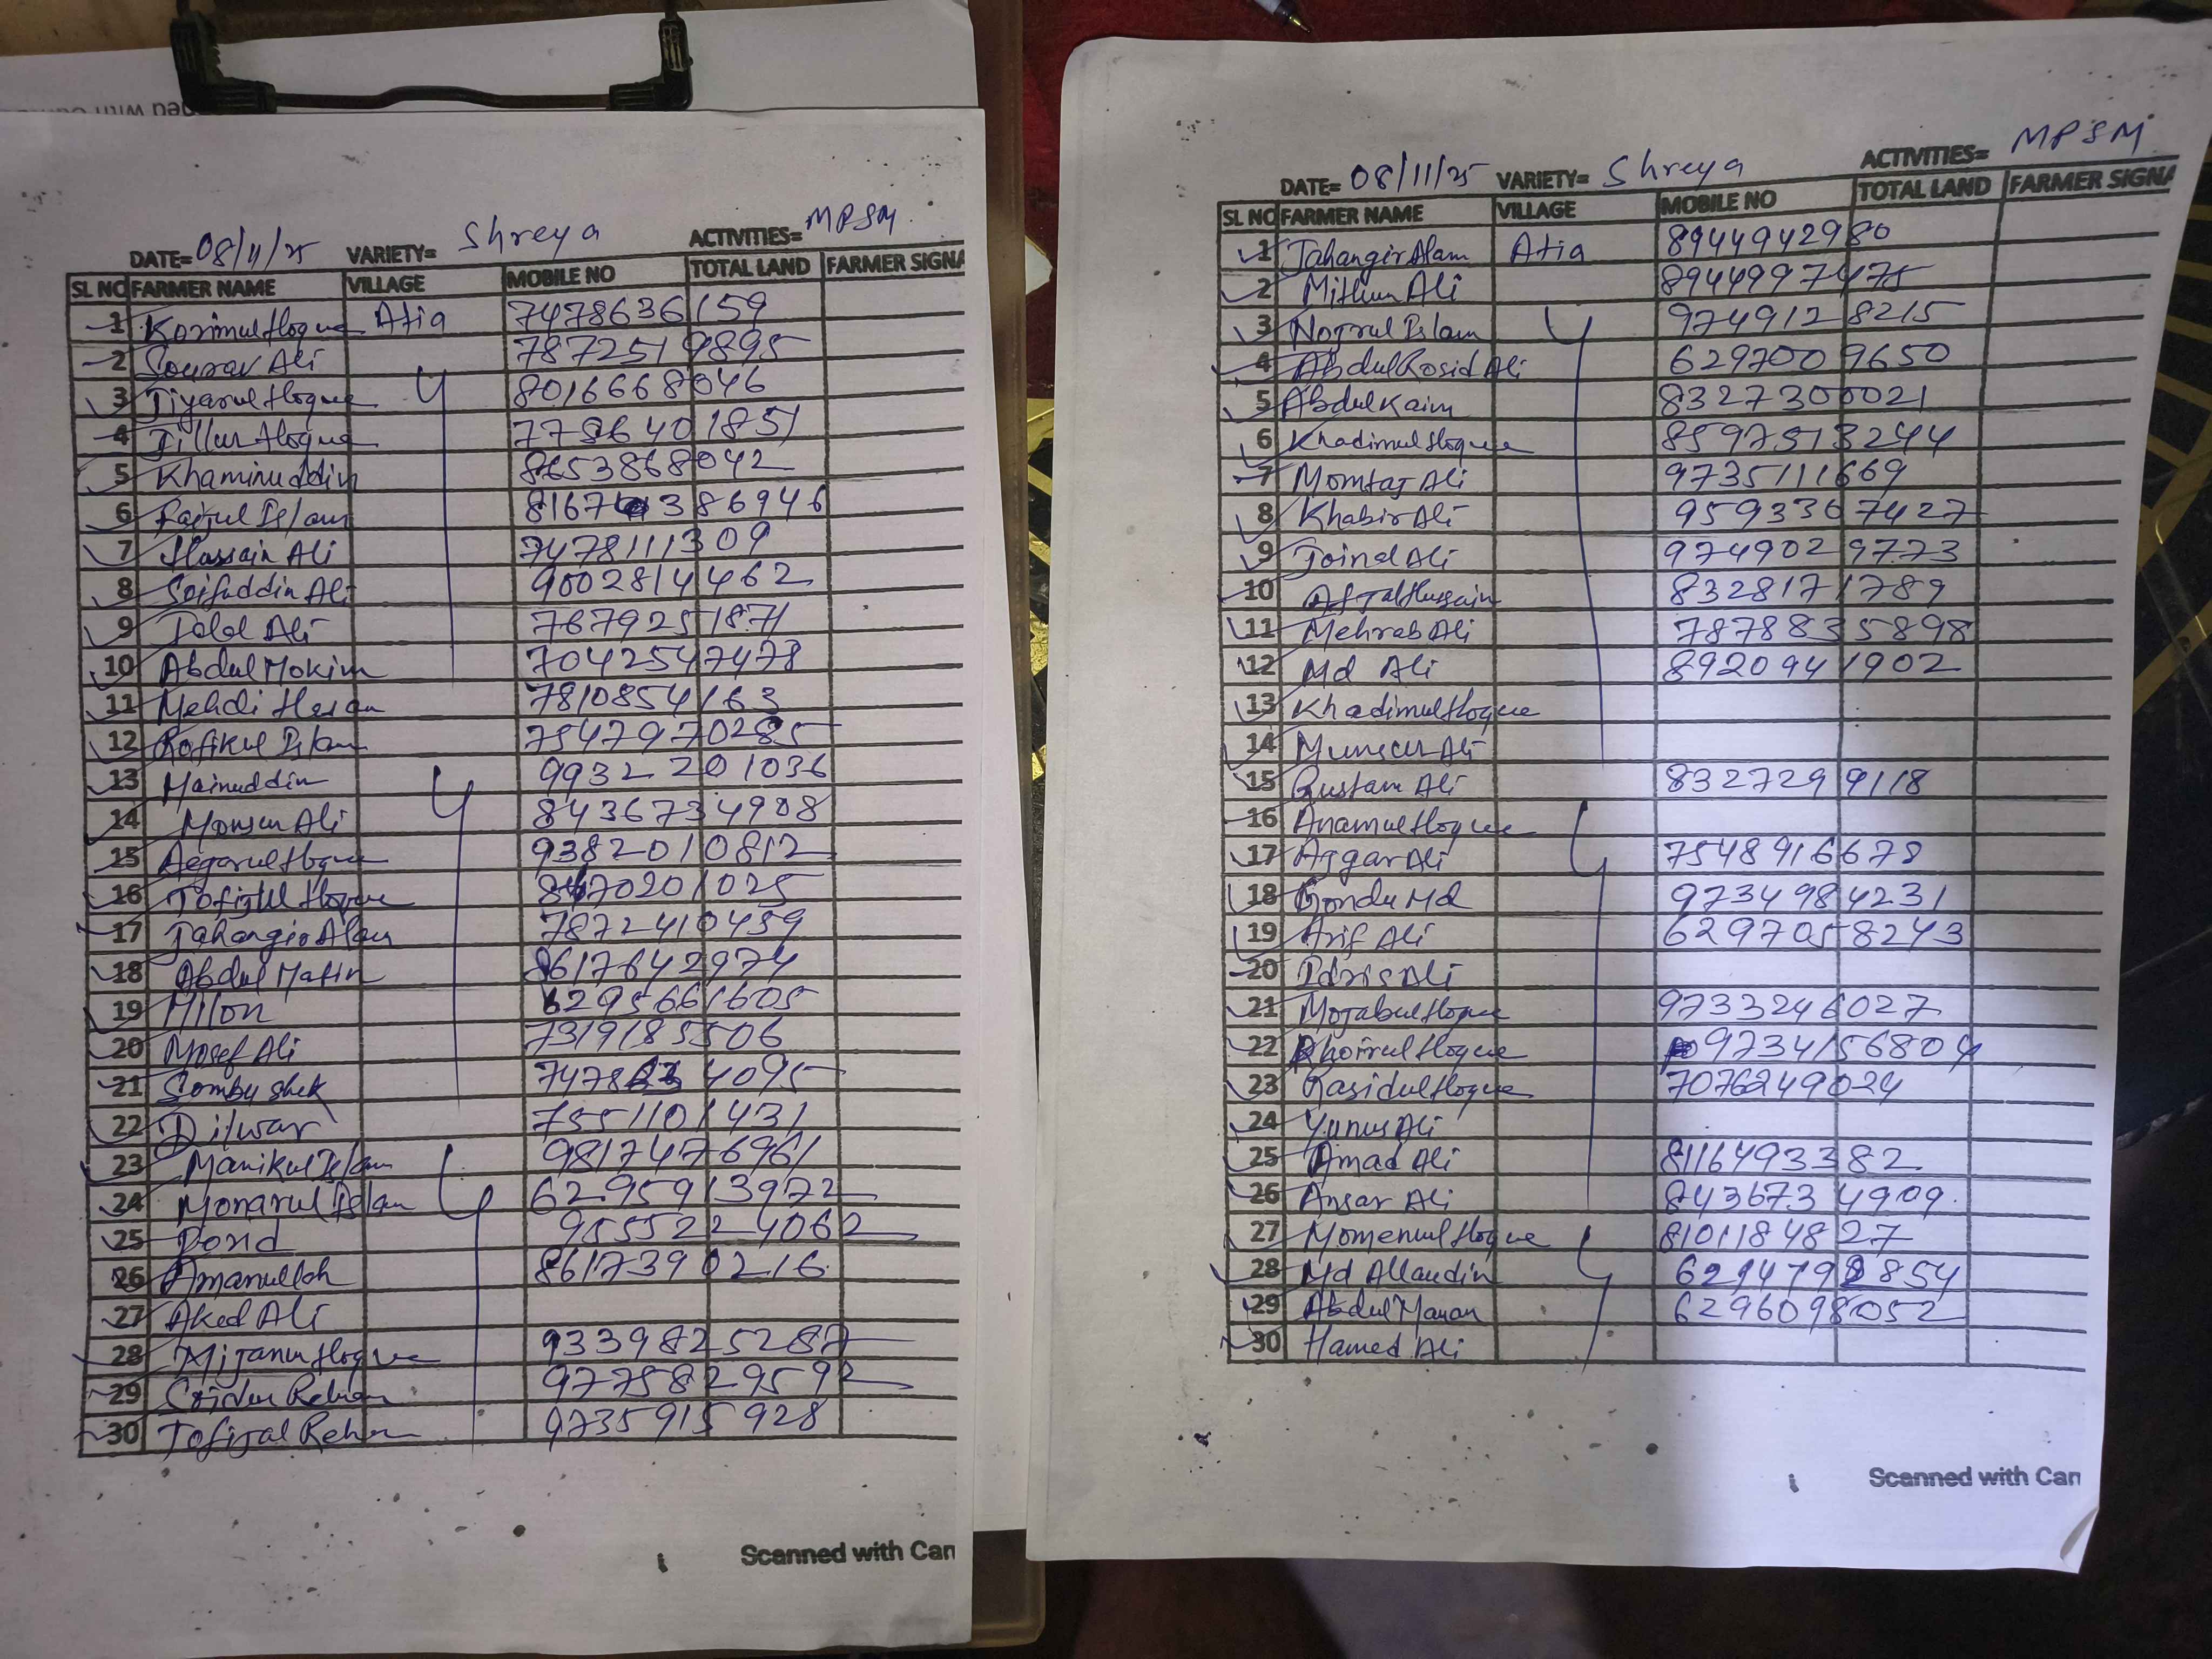 DATE= 08/11/25 VARIETY= Shreya ACTIVITIES= MPSM
SL NO FARMER NAME VILLAGE MOBILE NO TOTAL LAND FARMER SIGNA
1 Korimul Hoque Atia 7478636159
2 Sourav Ali 7872519895
3 Jiyarul Hoque 8016668046
4 Jillur Hoque
5 Khaminuddin 8653868042
6 Faijul Islam
7 Hassain Ali 7478111309
8 Soifuddin Ali 9002814462
9 Jalal Ali 7679251871
10 Abdul Mokim 7042547478
11 Mehdi Hasan 7810854163
12 Rofikul Islam 7547970285
13 Mainuddin 9932201036
14 Monsur Ali 8436734908
15 Aegarul Hoque 9382010812
16 Tofijul Hoque
17 Jahangir Alam 7872410459
18 Abdul Matin 8617642974
19 Milon 6295661605
20 Mosef Ali 7319185506
21 Sombu Shek
22 Dilwar 7551101431
23 Manikul Islam 9817476961
24 Monarul Islam 6295913972
25 9555224062
26 Amanulloh 8617390216
27 Aked Ali
28 Mijanur Hoque 9339825287
29 Rehman 9775829592
30 Tofijal Rehman 9735915928
Scanned with Cam
DATE= 08/11/25 VARIETY= Shreya ACTIVITIES= MPSM
SL NO FARMER NAME VILLAGE MOBILE NO TOTAL LAND FARMER SIGNA
1 Jahangir Alam Atia 8944942980
2 Mithun Ali 8944997475
3 Nojrul Islam 9749128215
4 Abdul Rosid Ali 6297009650
5 Abdul Kaim 8327300021
6 Khadimul Hoque 8597513244
7 Momtaj Ali 9735111669
8 Khabir Ali 9593367427
9 Joinal Ali 9749029773
10 Afjal Hussain 8328171789
11 Mehrab Ali 7878835898
12 Md Ali 8920941902
13 Khadimul Hoque
14 Munsur Ali
15 Rustam Ali 8327299118
16 Anamul Hoque
17 Aggar Ali 7548916678
18 Gondu Md 9734984231
19 Arif Ali 6297058243
20 Idris Ali
21 Mojabul Hoque 9733246027
22 Khoirul Hoque 9734156804
23 Rasidul Hoque 7076249024
24 Yunus Ali
25 Amad Ali 8116493382
26 Ansar Ali 8436734909
27 Momenul Hoque 8101184827
28 Md Allaudin
29 Abdul Manan 6296098052
30 Hamed Ali
Scanned with Cam